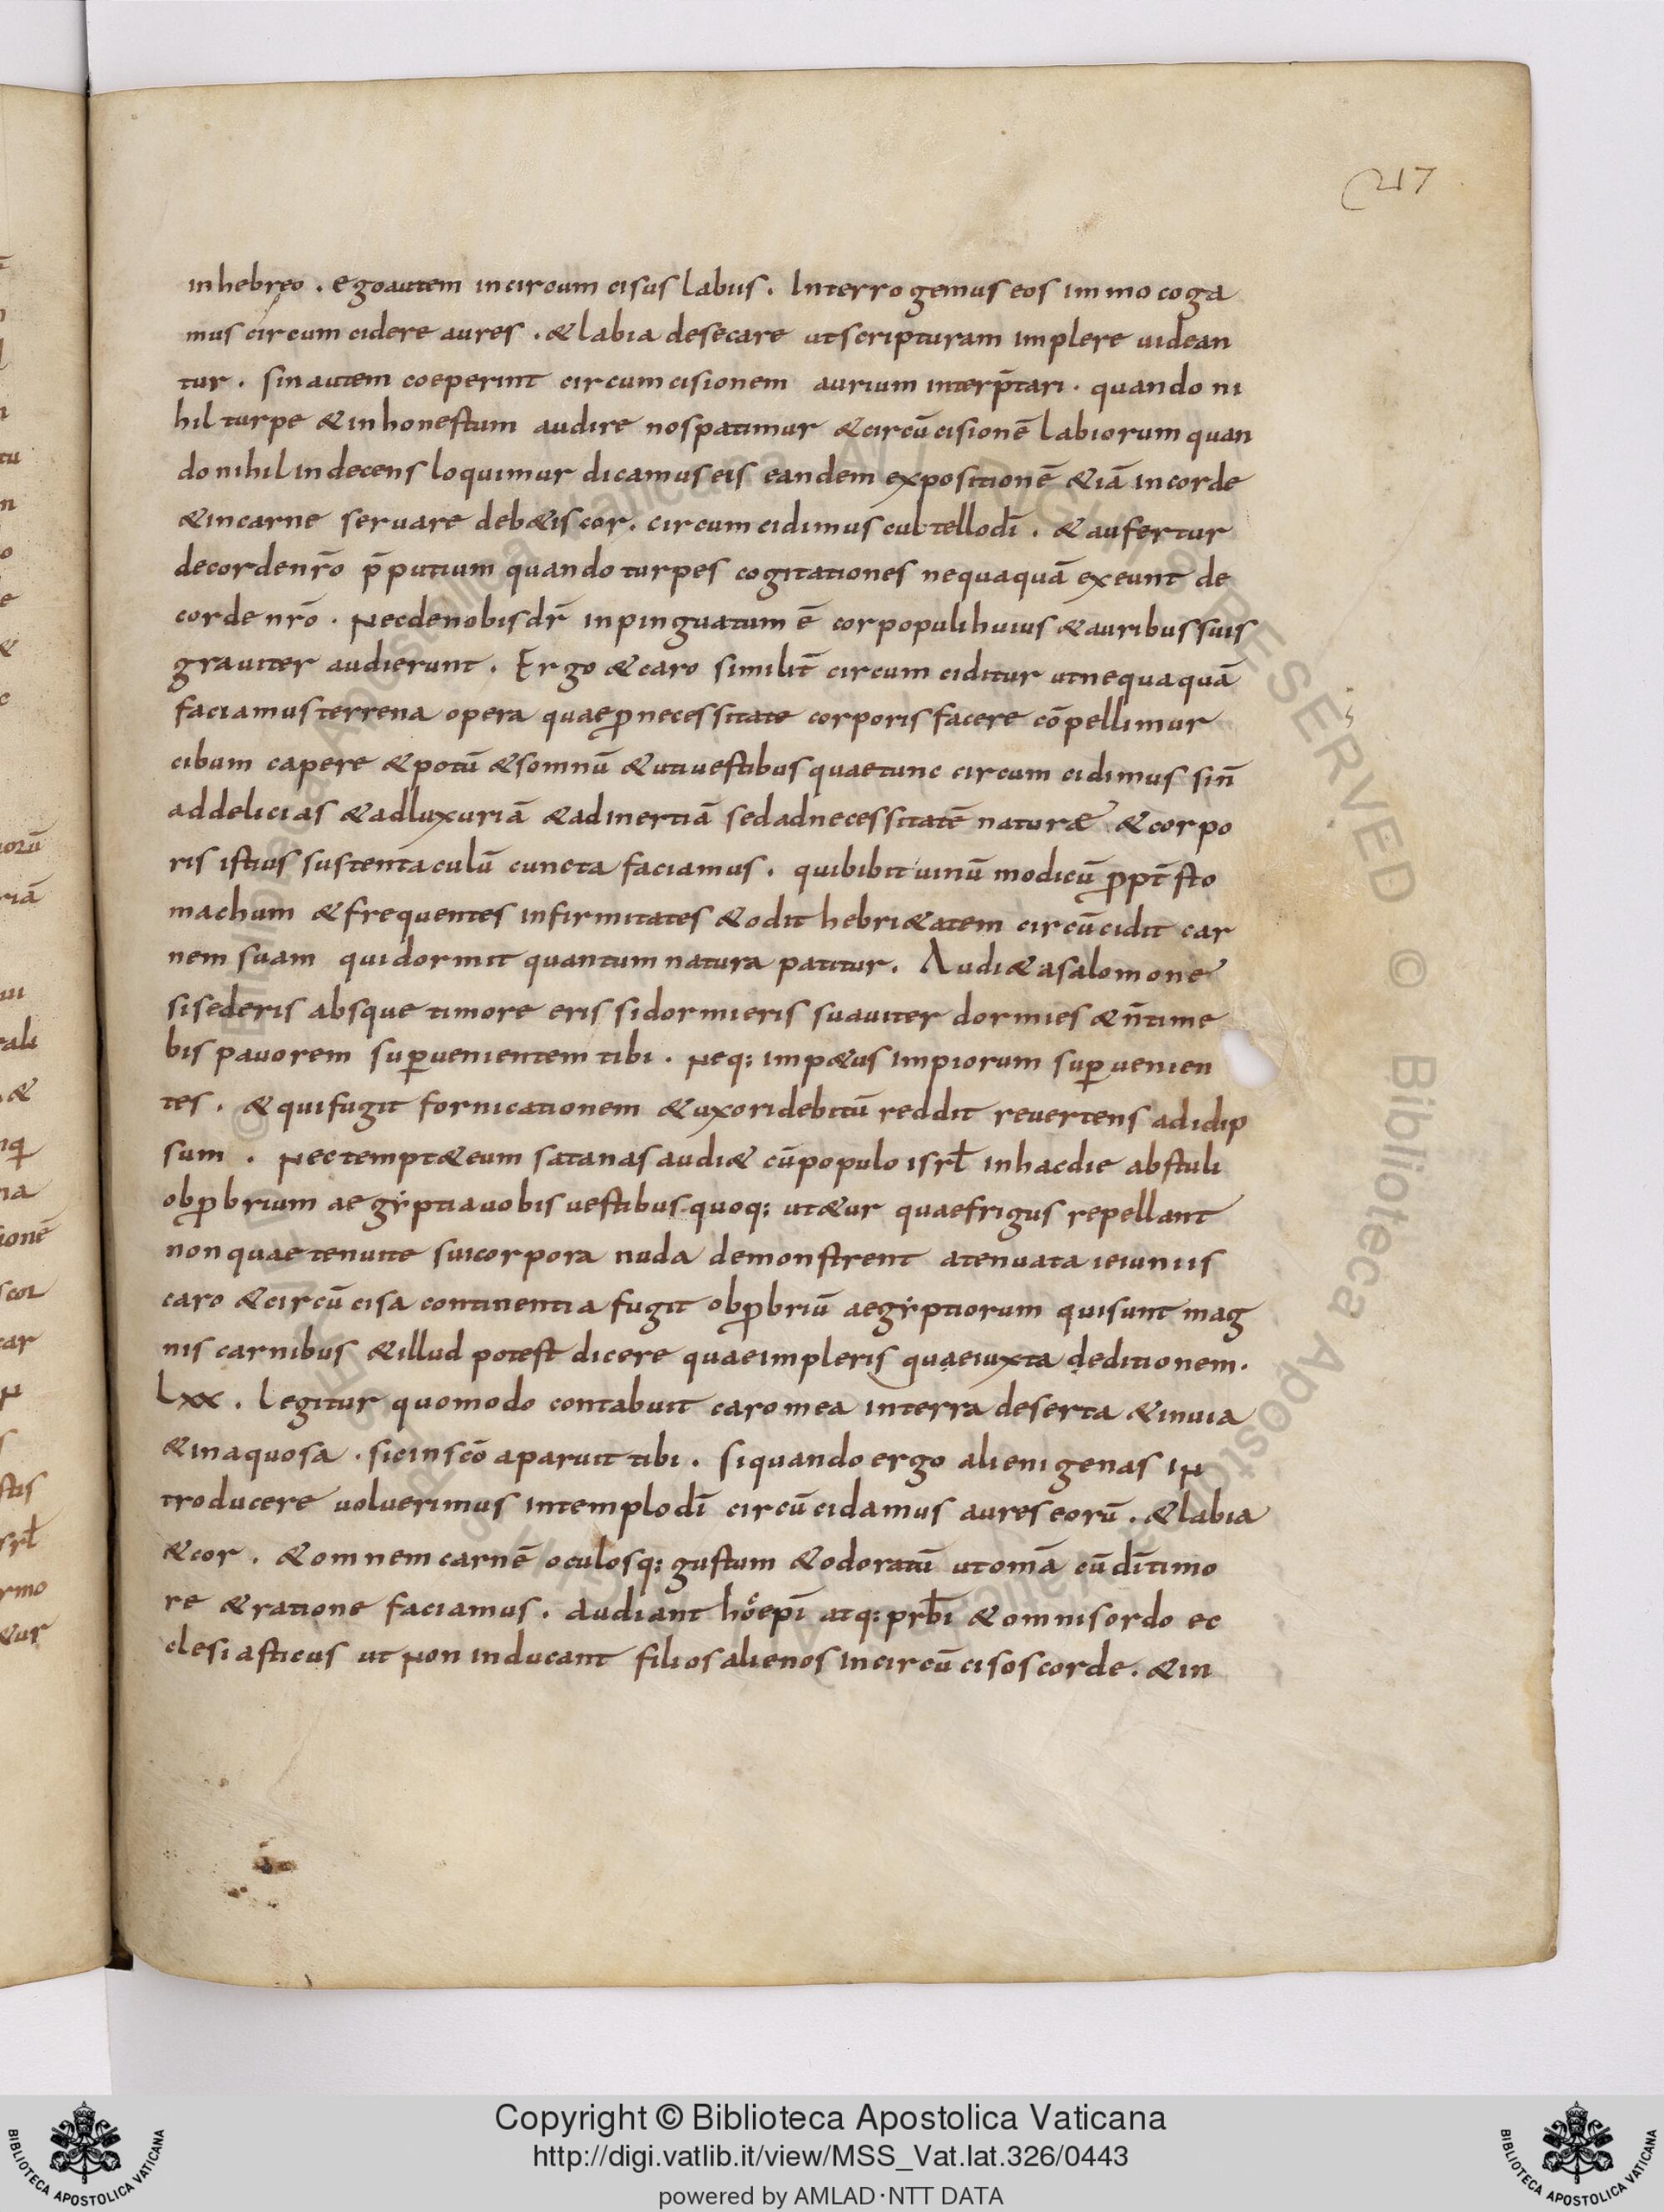 217
inhebręo . egoautem incircum cisus labiis . Interrogemus eos immo coga
mus circum cidere aures . & labia desecare utscripturam implere uidean
tur . sinautem coeperint circumcisionem aurium interp̄tari . quando ni
hil turpe & inhonestum audire nospatimur & circū cisionē labiorum quan
do nihil indecens loquimur dicamus eis eandem expositionē &iā incorde
& incarne seruare deb&is cor . circum cidimus cultellodī . & aufertur
decordenr̄o p̄putium quando turpes cogitationes nequaquā exeunt de
corde nr̄o . Necdenobisdr̄ inpinguatum ē cor populihuius & auribus suis
grauiter audierunt . Ergo & caro similit̄ circum ciditur utnequaquā
faciamus terrena opera quae ꝓnecessitate corporis facere cōpellimur
cibum capere & potū & somnū & utiuestibus quaetunc circum cidimus sin̄
addelicias & adluxuriā & adinertiā sedadnecessitatē naturæ & corpo
ris istius sustentaculū cuncta faciamus . quibibit uinū modicū ꝓpt̄ sto
machum & frequentes infirmitates & odit hebri&atem circūcidit car
nem suam quidormit quantum natura patitur . Audi& asalomone
sisederis absque timore eris sidormieris suauiter dormies & n̄time
bis pauorem suꝑuenientem tibi . Neq; imp&us impiorum suꝑuenien
tes . & quifugit fornicationem & uxoridebitū reddit reuertens adidip
sum . Nectempt&eum satanas audi& cūpopulo isrl̄ inhacdie abstuli
obꝓbrium aegẏptiauobis uestibus quoq; ut&ur quaefrigus repellant
nonquaetenuite suicorpora nuda demonstrent atenuata ieiuniis
caro & circū cisa continentia fugit obꝓbriū aegẏptiorum quisunt mag
nis carnibus & illud potest dicere quaeimpleris quaeiuxta deditionem .
Lxx . Legitur quomodo contabuit caromea interra deserta & inuia
& inaquosa . sicinscō aparuit tibi . siquando ergo alienigenas in
troducere uoluerimus intemplodī circū cidamus aures eorū . & labia
& cor . & omnem carnē oculosq; gustum & odoratū utomā cūdītimo
re & ratione faciamus . Audiant hoepī atq; prb̄i & omnisordo ec
clesiasticus ut Non inducant filios alienos incircū cisos corde . & in
Copyright © Biblioteca Apostolica Vaticana
http://digi.vatlib.it/view/MSS_Vat.lat.326/0443
powered by AMLAD·NTT DATA